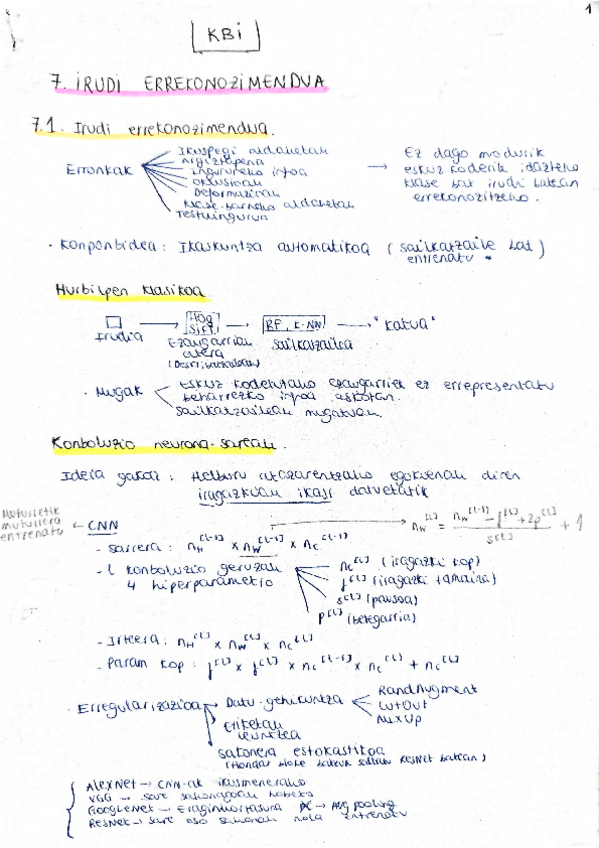 1
KBi
7. IRUDI ERREKONOZIMENDUA
7.1. Irudi errekonozimendua.
Erronkak
Ikuspegi aldaketak
Argiztapena
Inguruneko infoa
Oklusioak
Deformazioak
Klase-barneko aldaketak
Testuingurua
→ Ez dago modurik
eskuz koderik idazteko
klase bat irudi batean
errekonozitzeko.
· Konponbidea: Ikaskuntza automatikoa (sailkatzaile bat)
entrenatu
Hurbilpen klasikoa
Irudia → HOG SIFT → RF, K-NN → "Katua"
Ezaugarrien sailkatzailea
· Mugak
Eskuz kodetutako ezaugarriek ez errepresentatu
beharrezko infoa askotan.
Sailkatzaileak mugatuak
Konboluzio neurona-sareak.
Ideia gakoa: Helburu atazarentzako egokienak diren
iragazkiak ikasi datuetatik
Muturretik
muturrera
entrenatu
← CNN
- Sarrera: n_H^[l-1] x n_W^[l-1] x n_C^[l-1]
n_W^[l] = (n_W^[l-1] - f^[l] + 2p^[l]) / s^[l] + 1
- l konboluzio geruzak
4 hiperparametro
n_C^[l] (iragazki kop)
f^[l] (iragazki tamaina)
s^[l] (pausoa)
p^[l] (betegarria)
- Irteera: n_H^[l] x n_W^[l] x n_C^[l]
- Param kop: f^[l] x f^[l] x n_C^[l-1] x n_C^[l] + n_C^[l]
· Erregularizazioa → Datu-gehikuntza
RandAugment
CutOut
MixUp
Etiketak
leuntzea
Sakonera estokastikoa
(Hondar bloke batzuk saltatu ResNet batean)
AlexNet → CNN-ak ikusmenerako
VGG → sare sakonagoak hobeto
GoogLeNet → Eraginkortasuna → Avg pooling
ResNet → sare oso sakonak nola entrenatu